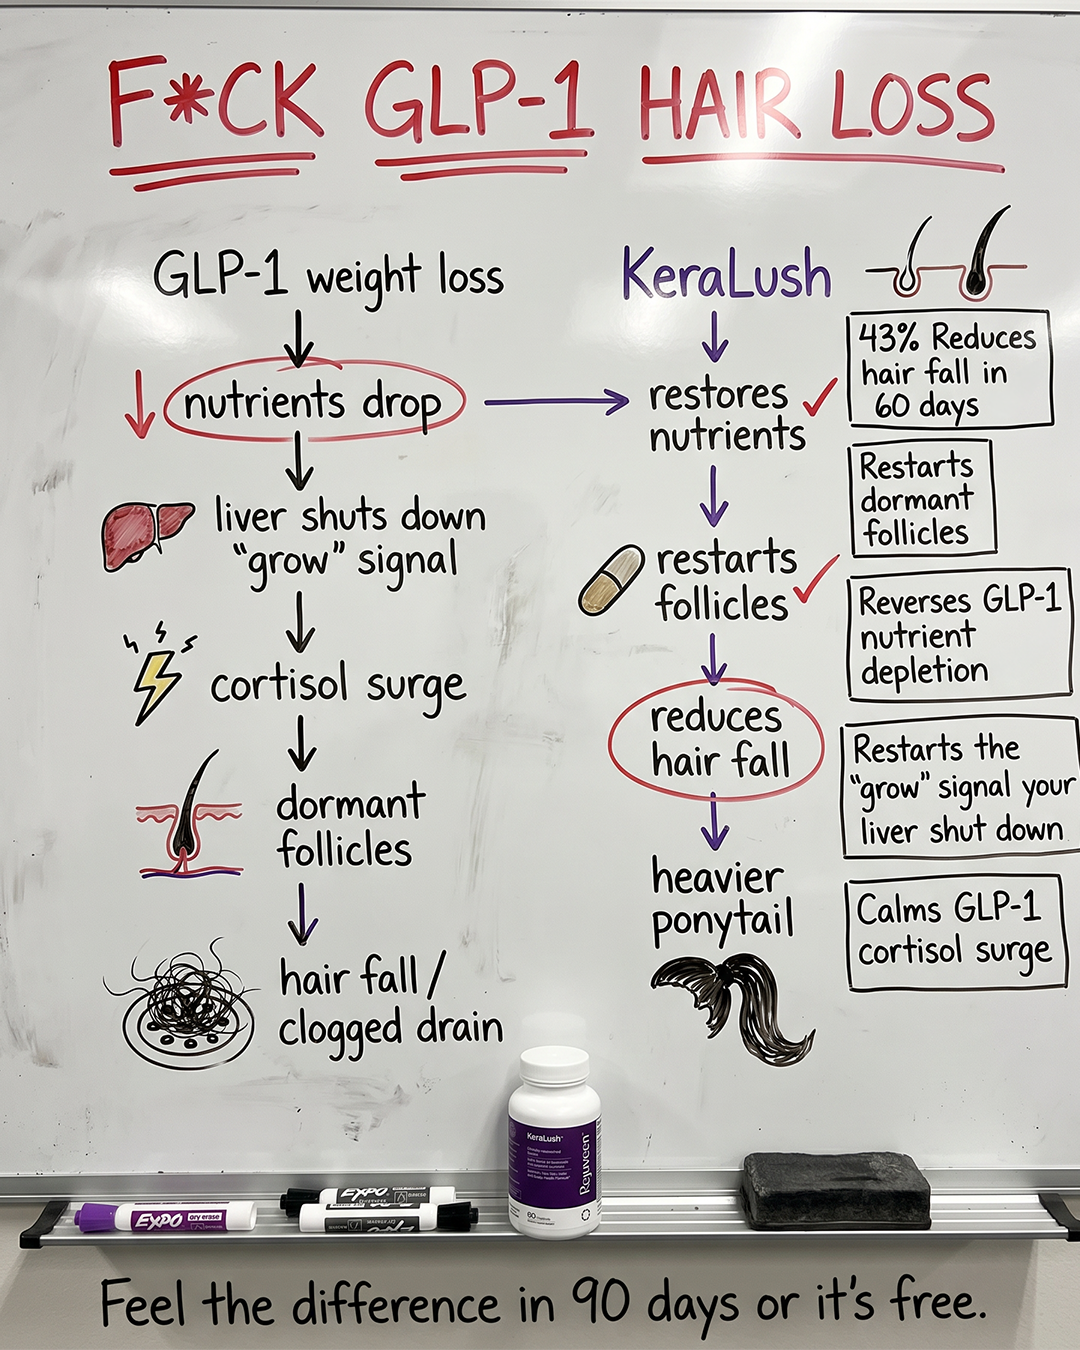 F*CK GLP-1 HAIR LOSS
GLP-1 weight loss
nutrients drop
liver shuts down
"grow" signal
cortisol surge
dormant
follicles
hair fall /
clogged drain
KeraLush
restores
nutrients
restarts
follicles
reduces
hair fall
heavier
ponytail
43% Reduces
hair fall in
60 days
Restarts
dormant
follicles
Reverses GLP-1
nutrient
depletion
Restarts the
"grow" signal your
liver shut down
Calms GLP-1
cortisol surge
KeraLush
Rejuveen
60
EXPO dry erase
EXPO
EXPO
Feel the difference in 90 days or it's free.